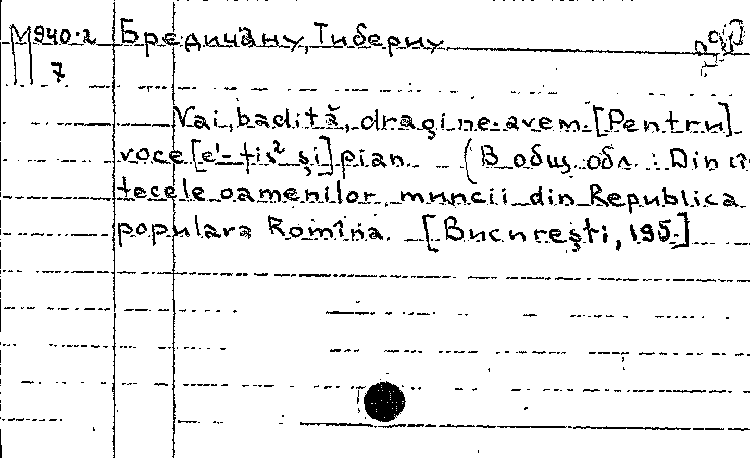 М940·2 Бредичану, Тибериу
7
Vai, badită, dragi ne-avem. [Pentru]
voce [e'-fis² şi] pian. (В общ. обл.: Din
tecele oamenilor muncii din Republica
populara Romîna. [Bucureşti, 195.]